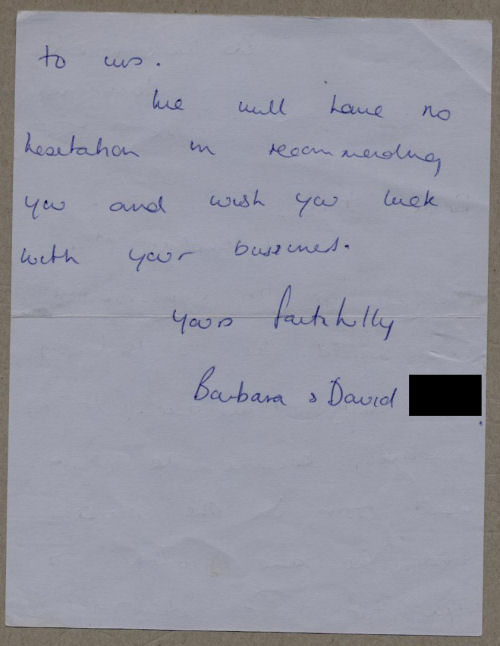 to us.
We will have no
hesitation in recommending
you and wish you luck
with your bussiness.
Yours faithfully
Barbara & David